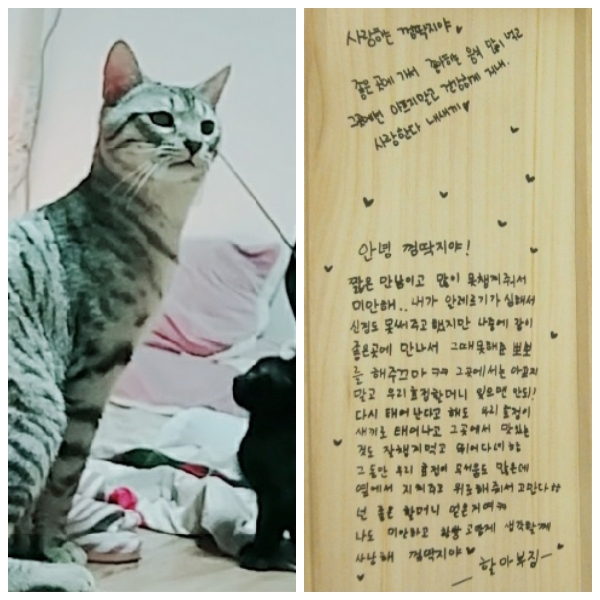 사랑하는 껌딱지야
좋은 곳에 가서 좋아하는 음식 많이 먹고
그곳에선 아프지만고 건강하게 지내.
사랑한다 내새끼
안녕 껌딱지야!
짧은 만남이고 많이 못챙겨줘서
미안해.. 내가 알레르기가 심해서
신경도 못써주고 했지만 나중에 같이
좋은곳에 만나서 그때못해준 뽀뽀
를 해주꼬마 ㅋㅋ 그곳에서는 아프지
말고 우리 효정할머니 잊으면 안되!
다시 태어난다고 해도 우리 효정이
새끼로 태어나고 그곳에서 맛있는
것도 잘챙겨먹고 뛰어다녀
그동안 우리 효정이 곁에서 많은데
옆에서 지켜주고 위로해줘서 고맙다
넌 좋은 할머니 얻은거여
나도 미안하고 고맙게 생각할께
사랑해 껌딱지야